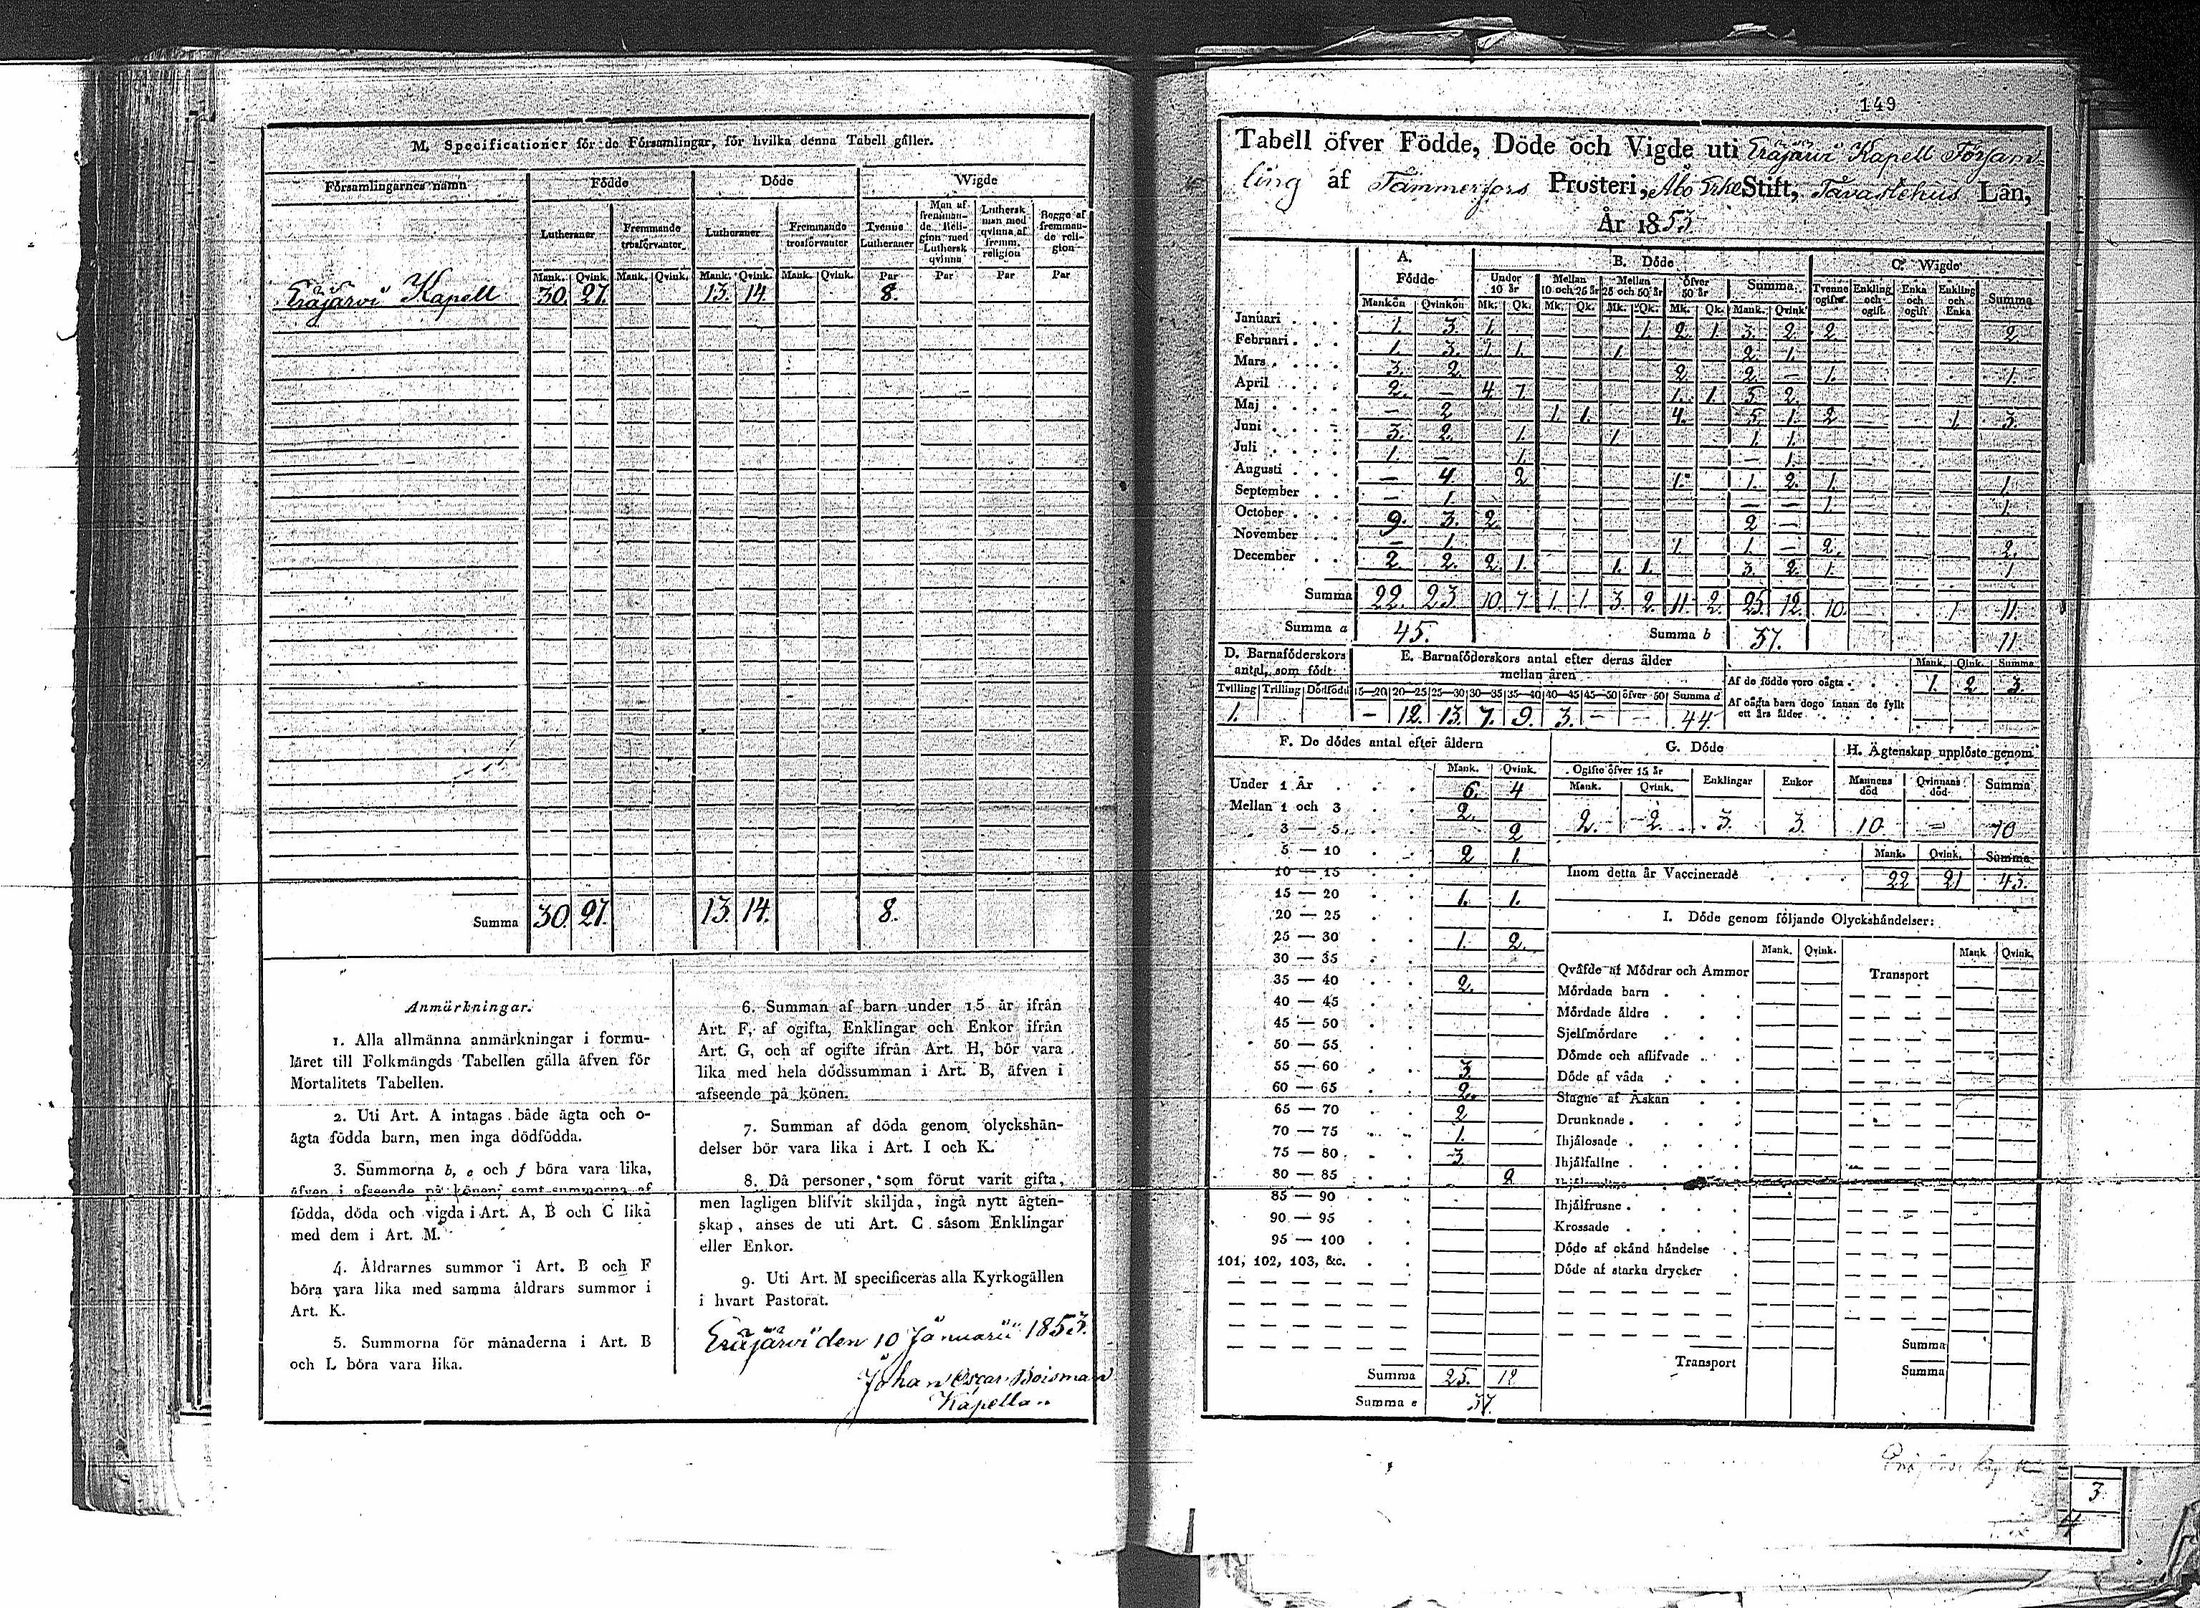 M. Specificationer för de Församlingar, för hvilka denna Tabell gäller.
Församlingarnes namn | Födde | Döde | Wigde
Lutheraner | Fremmande trosförvanter | Lutheraner | Fremmande trosförvanter | Tvenne Lutheraner | Man af fremmande Religion med Luthersk qvinna | Luthersk man med qvinna af fremm. religion | Begge af fremmande religion
Mank. | Qvink. | Mank. | Qvink. | Mank. | Qvink. | Mank. | Qvink. | Par | Par | Par | Par
Eräjärvi Kapell 30. 27. 13. 14. 8.
Summa 30. 27. 13. 14. 8.
Anmärkningar.
1. Alla allmänna anmärkningar i formu-
läret till Folkmängds Tabellen gälla äfven för
Mortalitets Tabellen.
2. Uti Art. A intagas både ägta och o-
ägta födda barn, men inga dödfödda.
3. Summorna b, e och f böra vara lika,
äfven i afseende på könen; samt summorna af
födda, döda och vigda i Art. A, B och C lika
med dem i Art. M.
4. Åldrarnes summor i Art. B och F
böra vara lika med samma åldrars summor i
Art. K.
5. Summorna för månaderna i Art. B
och L böra vara lika.
6. Summan af barn under 15 år ifrån
Art. F, af ogifta, Enklingar och Enkor ifrån
Art. G, och af ogifte ifrån Art. H, bör vara
lika med hela dödssumman i Art. B, äfven i
afseende på könen.
7. Summan af döda genom olyckshän-
delser bör vara lika i Art. I och K.
8. Då personer, som förut varit gifta,
men lagligen blifvit skiljda, ingå nytt ägten-
skap, anses de uti Art. C såsom Enklingar
eller Enkor.
9. Uti Art. M specificeras alla Kyrkogällen
i hvart Pastorat.
Eräjärvi den 10 Januarii 1853.
Johan Oscar Boisman
Kapellan.
149
Tabell öfver Födde, Döde och Vigde uti Eräjärvi Kapell Försam-
ling af Tammerfors Prosteri, Åbo Erke Stift, Tavastehus Län,
År 1853
A. Födde | B. Döde | C. Wigde
Under 10 år | Mellan 10 och 25 år | Mellan 25 och 50 år | Öfver 50 år | Summa | Tvenne ogifte | Enkling och ogift | Enka och ogift | Enkling och Enka | Summa
Mankön | Qvinkön | Mk. | Qk. | Mk. | Qk. | Mk. | Qk. | Mk. | Qk. | Mank. | Qvink.
Januari 1. 3. 1. 1. 2. 1. 3. 2. 2. 2.
Februari 1. 3. 1. 1. 1. 2. 1.
Mars 3. 2. 2. 2. — 1. 1.
April 2. — 4. 1. 1. 1. 5. 2.
Maj — 2 1. 1. 4. 5. 1. 2 1. 3.
Juni 3. 2. 1. 1. 1. 1.
Juli 1. — 1. — 1.
Augusti — 4. 2 1. 1. 2. 1. 1.
September — 1. — — 1. 1.
October 9. 3. 2. 2 —
November — 1. 1. 1. — 2. 2.
December 2. 2. 2. 1. 1. 1. 3. 2. 1. 1
Summa 22. 23. 10. 7. 1. 1. 3. 2. 11. 2. 25. 12. 10. 1 11.
Summa a 45. Summa b 37. 11
D. Barnaföderskors antal, som födt | E. Barnaföderskors antal efter deras ålder mellan åren
Tvilling | Trilling | Dödfödd | 15—20 | 20—25 | 25—30 | 30—35 | 35—40 | 40—45 | 45—50 | öfver 50 | Summa d
1. — 12. 13. 7. 9. 3. — — 44.
Mank. | Qink. | Summa
Af de födde voro oägta 1. 2 3.
Af oägta barn dogo innan de fyllt ett års ålder
F. De dödes antal efter åldern
Mank. | Qvink.
Under 1 År 6. 4
Mellan 1 och 3 2.
3 — 5 2
5 — 10 2 1.
10 — 15
15 — 20 1. 1.
20 — 25
25 — 30 1. 2.
30 — 35
35 — 40 2.
40 — 45
45 — 50
50 — 55
55 — 60 3.
60 — 65 2.
65 — 70 2
70 — 75 1.
75 — 80 3.
80 — 85 2
85 — 90
90 — 95
95 — 100
101, 102, 103, &c.
Summa 25. 12
Summa e 37.
G. Döde
Ogifte öfver 15 år | Enklingar | Enkor
Mank. | Qvink.
2. 2. 3. 3.
H. Ägtenskap upplöste genom
Mannens död | Qvinnans död | Summa
10 — 10
Mank. | Qvink. | Summa
Inom detta år Vaccinerade 22 21 43.
I. Döde genom följande Olyckshändelser:
Mank. | Qvink. | Mank. | Qvink.
Qväfde af Mödrar och Ammor
Mördade barn
Mördade äldre
Sjelfmördare
Dömde och aflifvade
Döde af våda
Slagne af Åskan
Drunknade
Ihjälosade
Ihjälfallne
Ihjälfrusne
Krossade
Döde af okänd händelse
Döde af starka drycker
Transport
Transport
Summa
Summa
3.
4